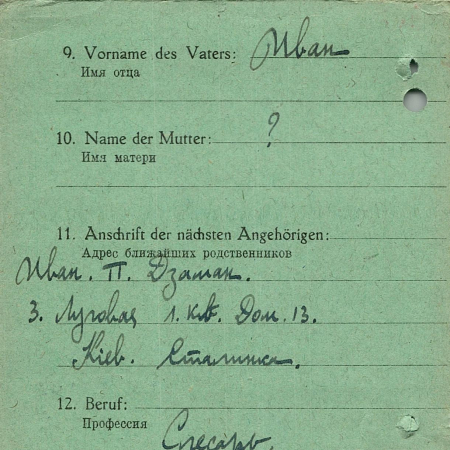 9. Vorname des Vaters: Иван
Имя отца
10. Name der Mutter: ?
Имя матери
11. Anschrift der nächsten Angehörigen:
Адрес ближайших родственников
Иван. П. Дзаман.
3. Луговая 1. кв. Дом. 13.
Кіев. Сталинка.
12. Beruf:
Профессия
Слесарь.